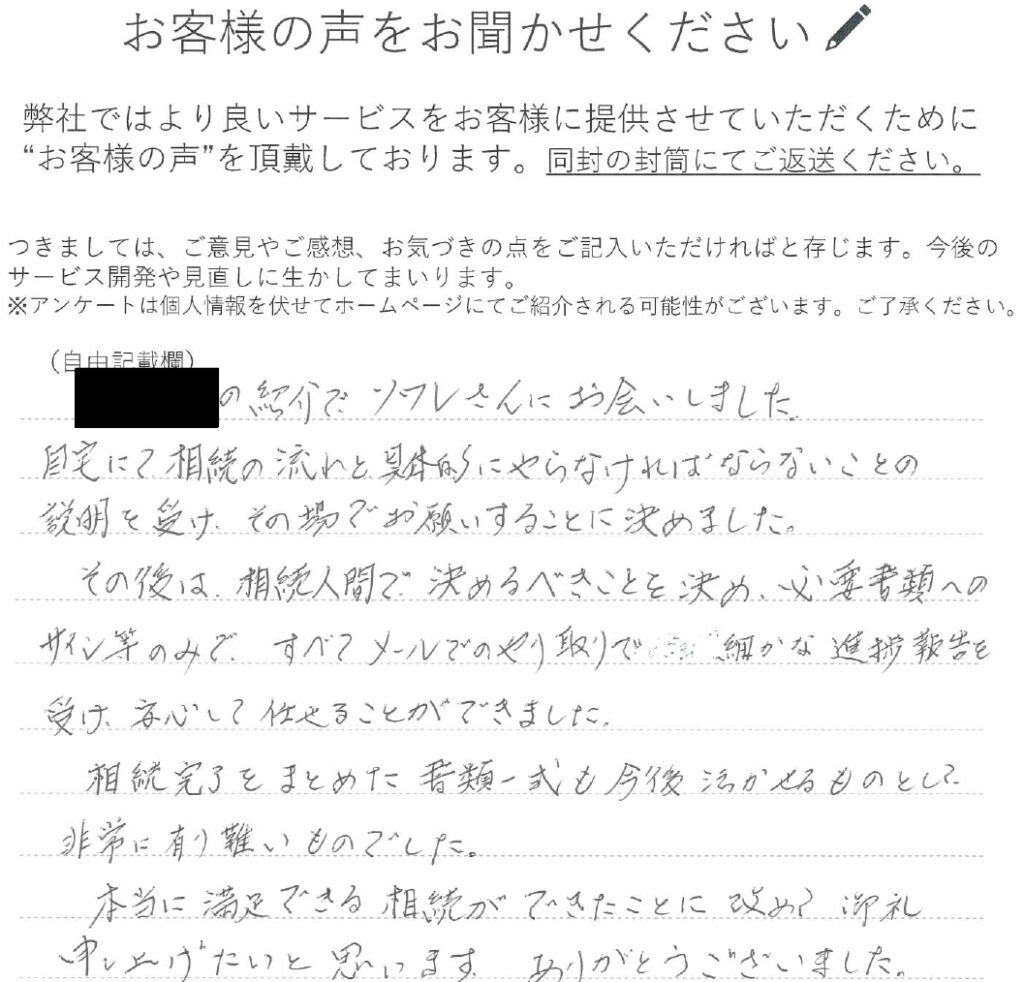 お客様の声をお聞かせください
弊社ではより良いサービスをお客様に提供させていただくために
“お客様の声”を頂戴しております。同封の封筒にてご返送ください。
つきましては、ご意見やご感想、お気づきの点をご記入いただければと存じます。今後の
サービス開発や見直しに生かしてまいります。
※アンケートは個人情報を伏せてホームページにてご紹介される可能性がございます。ご了承ください。
（自由記載欄）
の紹介で ソワレさんにお会いしました。
自宅にて相続の流れと具体的にやらなければならないことの
説明を受け、その場でお願いすることに決めました。
その後は、相続人間で決めるべきことを決め、必要書類への
サイン等のみで、すべてメールでのやり取りで 細かな進捗報告を
受け、安心して任せることができました。
相続完了をまとめた書類一式も今後活かせるものとして
非常に有り難いものでした。
本当に満足できる相続ができたことに改めて御礼
申し上げたいと思います。ありがとうございました。